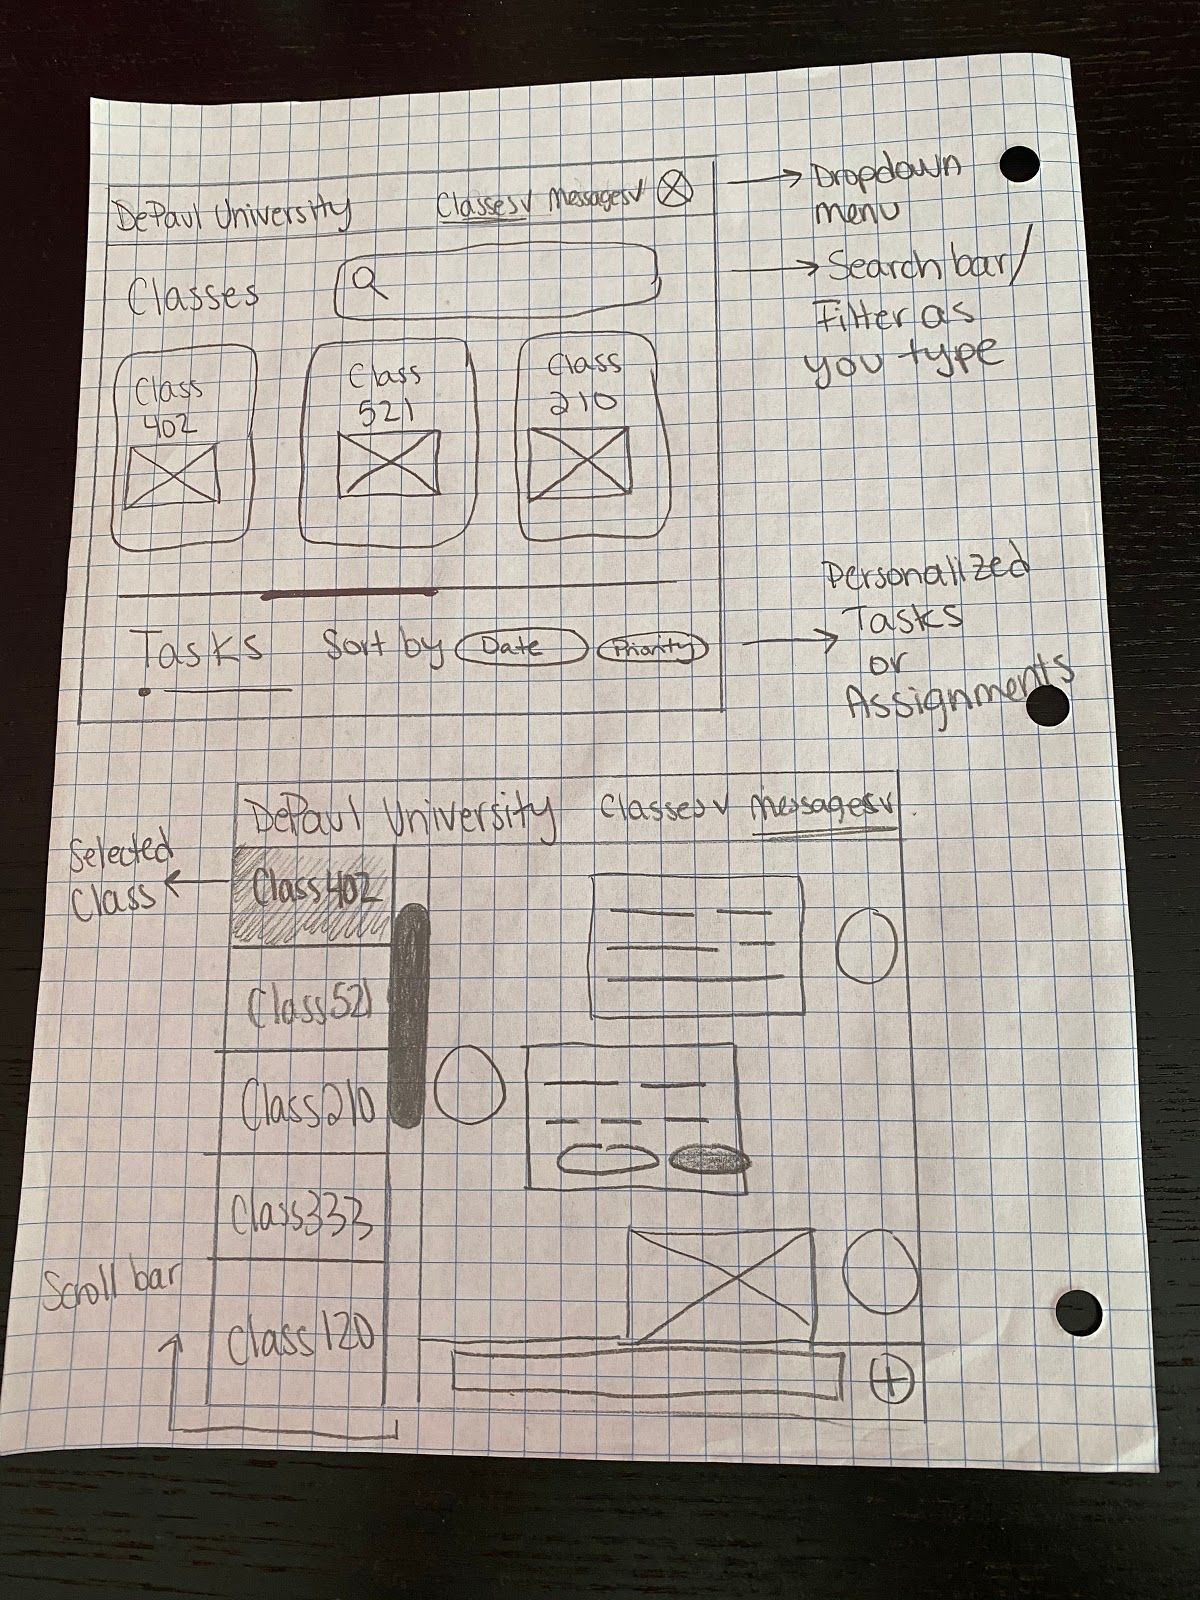 DePaul University Classes∨ Messages∨
→ Dropdown
menu
Classes
→ Search bar/
Filter as
you type
Class
402
Class
521
Class
210
Tasks Sort by Date Priority
→ Personalized
Tasks
or
Assignments
DePaul University Classes∨ Messages∨
Selected
Class ←
Class 402
Class 521
Class 210
Class 333
Class 120
Scroll bar